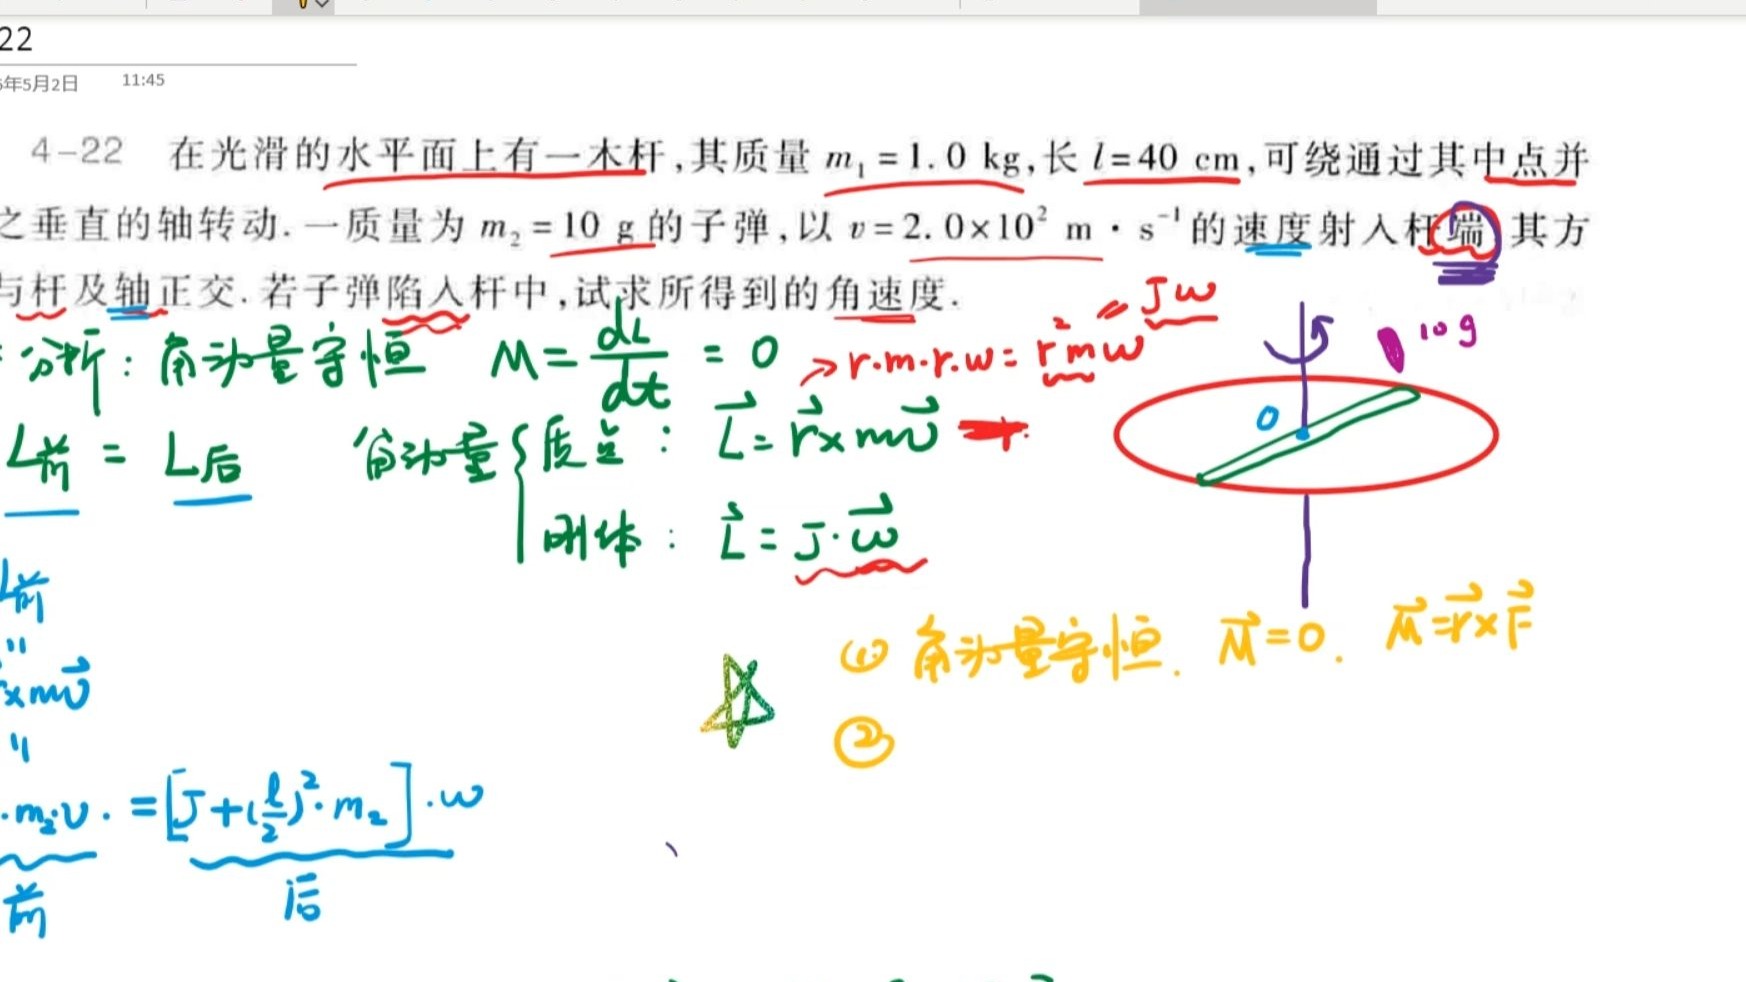 22
年5月2日 11:45
4-22 在光滑的水平面上有一木杆,其质量 m₁=1.0 kg,长 l=40 cm,可绕通过其中点并
之垂直的轴转动.一质量为 m₂=10 g 的子弹,以 v=2.0×10² m·s⁻¹ 的速度射入杆端,其方
与杆及轴正交.若子弹陷入杆中,试求所得到的角速度.
= Jω
分析:角动量守恒 M=dL/dt=0
r·m·r·ω=r²mω
10g
O
L前=L后
角动量 质点: L⃗=r⃗×mv⃗
刚体: L⃗=J·ω⃗
L前
"
×mv⃗
"
① 角动量守恒. M⃗=0. M⃗=r⃗×F⃗
②
·m₂·v·=[J+(l/2)²·m₂]·ω
前 后